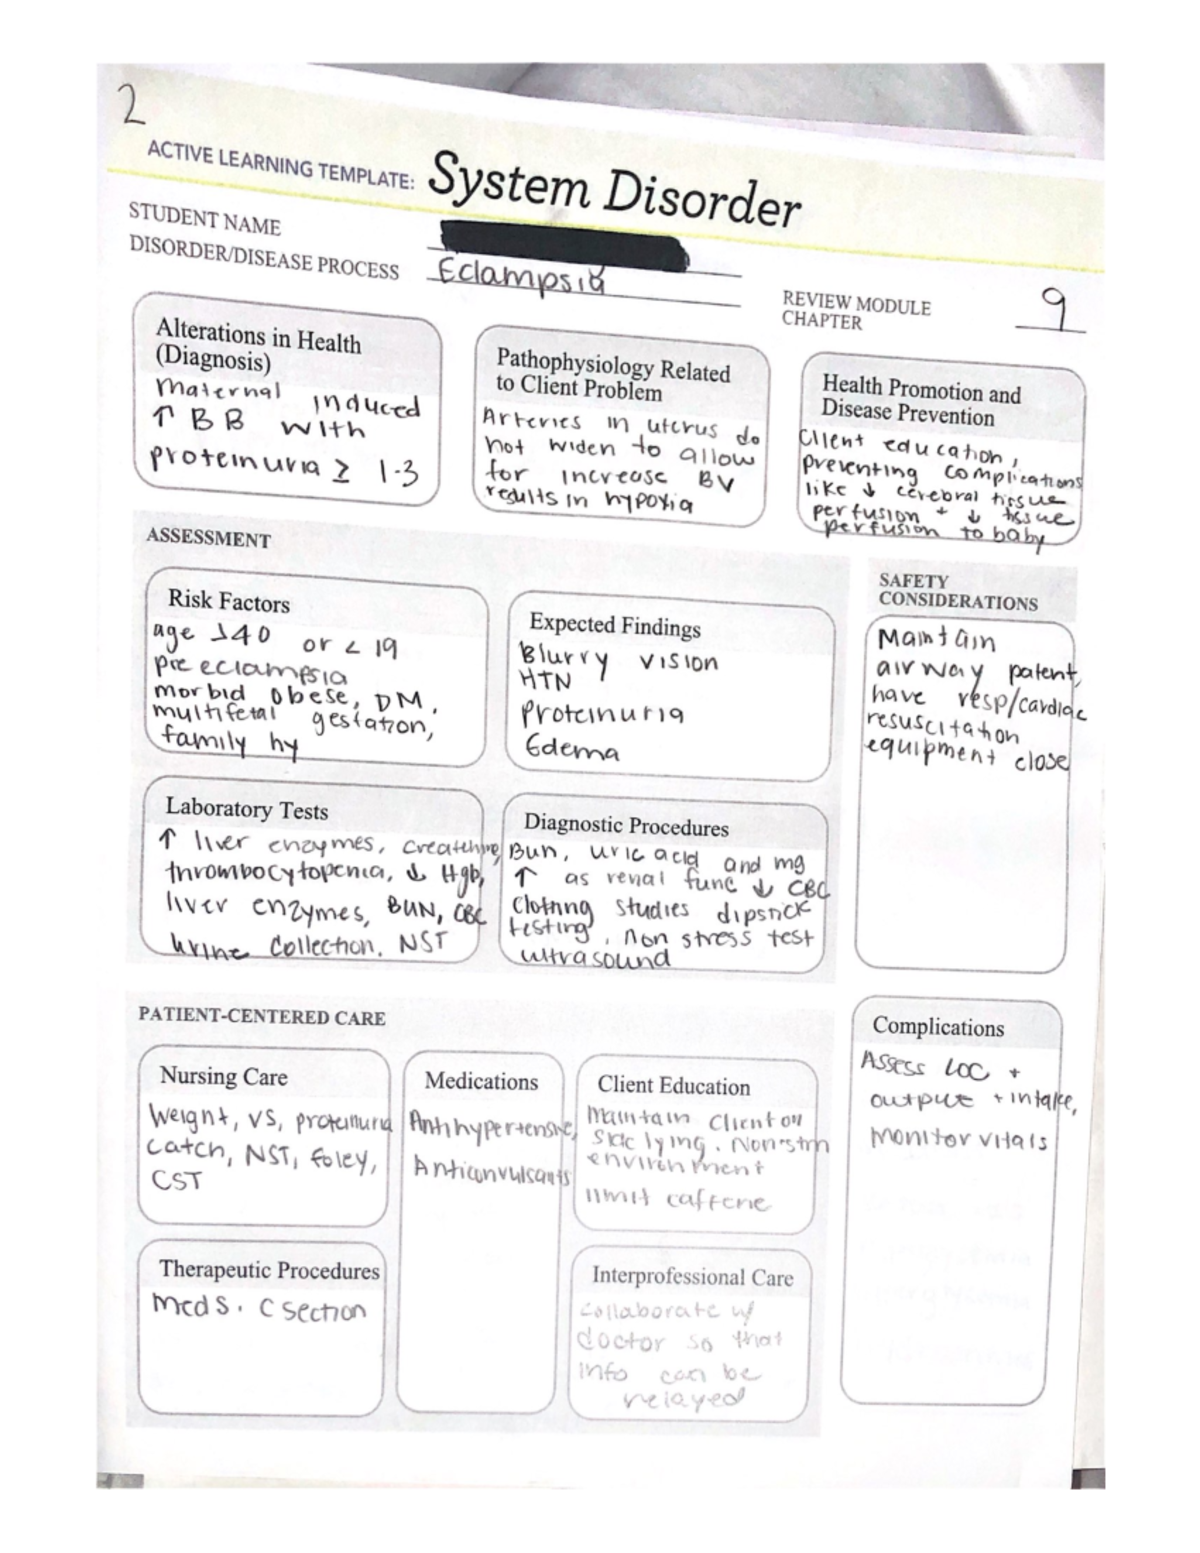 2
ACTIVE LEARNING TEMPLATE: System Disorder
STUDENT NAME
DISORDER/DISEASE PROCESS Eclampsia
REVIEW MODULE
CHAPTER 9
Alterations in Health
(Diagnosis)
Maternal induced
↑ BB with
proteinuria ≥ 1-3
Pathophysiology Related
to Client Problem
Arteries in uterus do
not widen to allow
for increase BV
results in hypoxia
Health Promotion and
Disease Prevention
Client education,
preventing complications
like ↓ cerebral tissue
perfusion + ↓ tissue
perfusion to baby
ASSESSMENT
Risk Factors
age >40 or < 19
pre eclampsia
morbid obese, DM,
multifetal gestation,
family hy
Expected Findings
Blurry vision
HTN
Proteinuria
Edema
SAFETY
CONSIDERATIONS
Maintain
airway patent,
have resp/cardiac
resuscitation
equipment close
Laboratory Tests
↑ liver enzymes, creatinine,
thrombocytopenia, ↓ Hgb,
liver enzymes, BUN, CBC
Urine collection. NST
Diagnostic Procedures
Bun, uric acid and mg
↑ as renal func ↓ CBC
Clotting studies dipstick
testing, non stress test
ultrasound
PATIENT-CENTERED CARE
Nursing Care
Weight, VS, proteinuria
catch, NST, foley,
CST
Medications
Antihypertensive,
Anticonvulsants
Client Education
Maintain Client on
side lying. Non-stm
environment
limit caffeine
Complications
Assess LOC +
output + intake,
monitor vitals
Therapeutic Procedures
Meds. C section
Interprofessional Care
collaborate w/
doctor so that
info can be
relayed